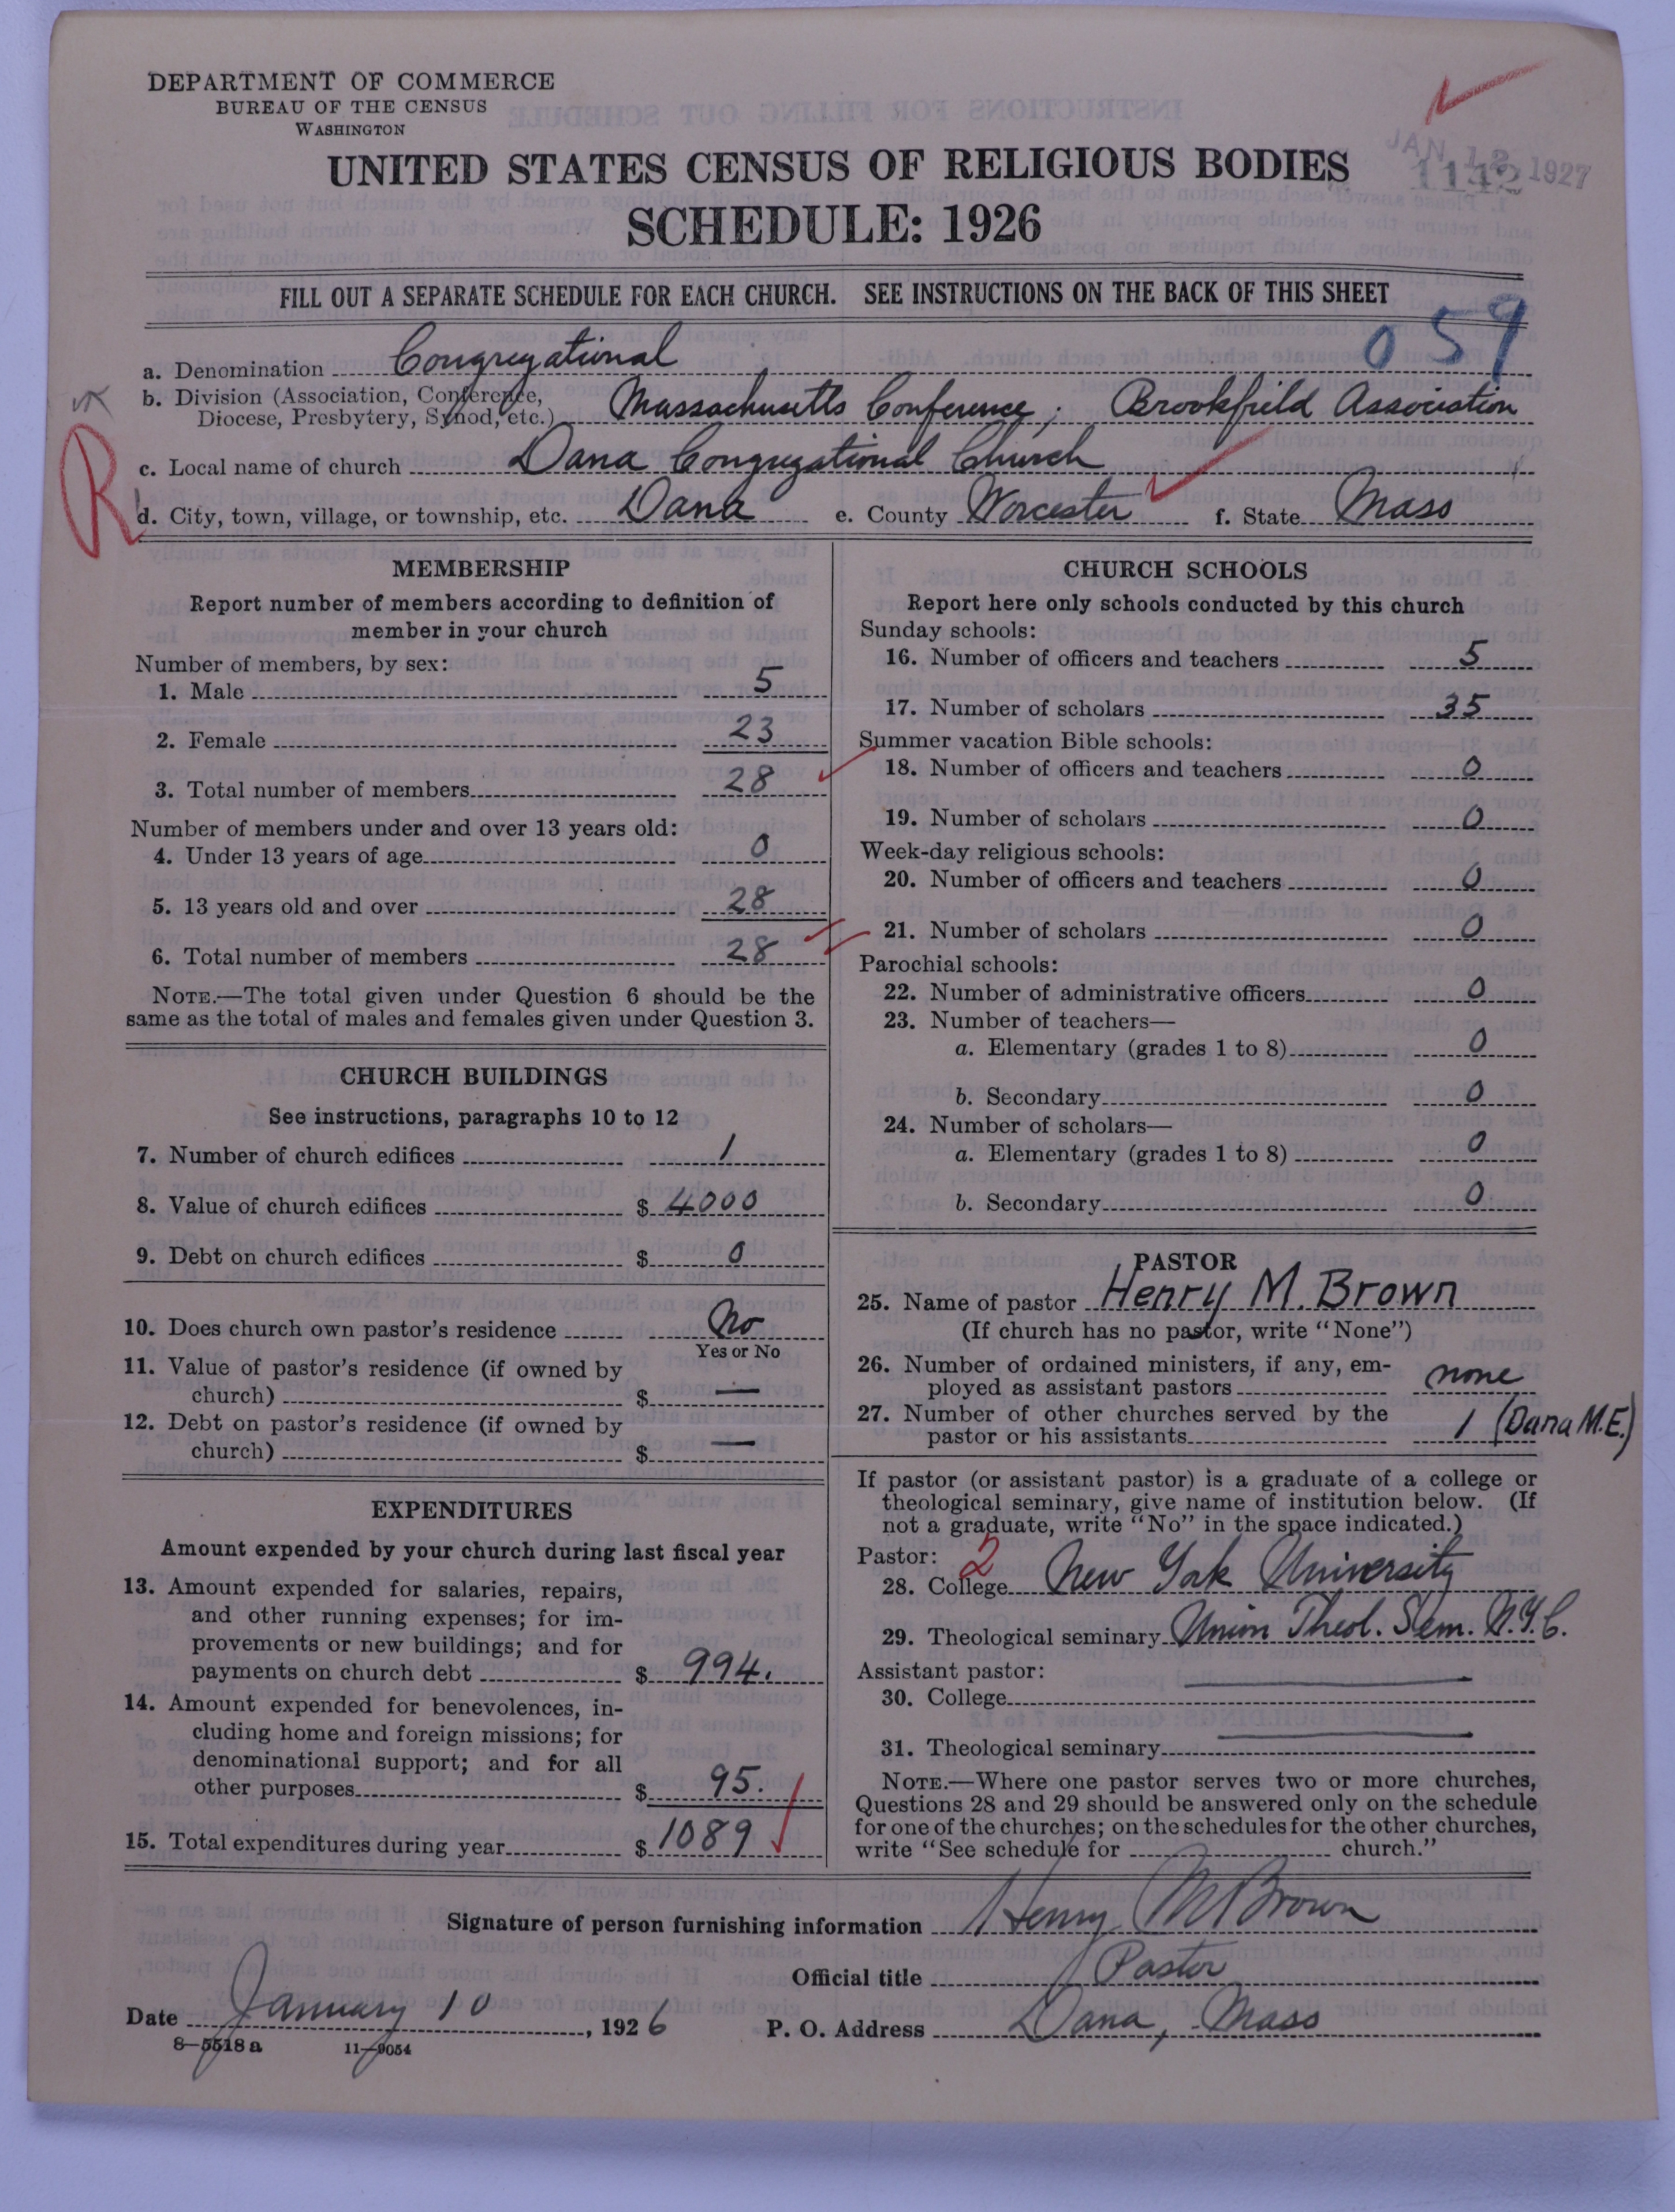 DEPARTMENT OF COMMERCE
BUREAU OF THE CENSUS
WASHINGTON
UNITED STATES CENSUS OF RELIGIOUS BODIES
JAN 12 1927
1142
SCHEDULE: 1926
FILL OUT A SEPARATE SCHEDULE FOR EACH CHURCH. SEE INSTRUCTIONS ON THE BACK OF THIS SHEET
059
a. Denomination Congregational
b. Division (Association, Conference,
Diocese, Presbytery, Synod, etc.) Massachusetts Conference; Brookfield Association
R
c. Local name of church Dana Congregational Church
d. City, town, village, or township, etc. Dana e. County Worcester f. State Mass
MEMBERSHIP
Report number of members according to definition of
member in your church
Number of members, by sex:
1. Male 5
2. Female 23
3. Total number of members 28
Number of members under and over 13 years old:
4. Under 13 years of age 0
5. 13 years old and over 28
6. Total number of members 28
NOTE.—The total given under Question 6 should be the
same as the total of males and females given under Question 3.
CHURCH BUILDINGS
See instructions, paragraphs 10 to 12
7. Number of church edifices 1
8. Value of church edifices $ 4000
9. Debt on church edifices $ 0
10. Does church own pastor's residence No
Yes or No
11. Value of pastor's residence (if owned by
church) $ —
12. Debt on pastor's residence (if owned by
church) $ —
EXPENDITURES
Amount expended by your church during last fiscal year
13. Amount expended for salaries, repairs,
and other running expenses; for im-
provements or new buildings; and for
payments on church debt $ 994.
14. Amount expended for benevolences, in-
cluding home and foreign missions; for
denominational support; and for all
other purposes $ 95.
15. Total expenditures during year $ 1089
CHURCH SCHOOLS
Report here only schools conducted by this church
Sunday schools:
16. Number of officers and teachers 5
17. Number of scholars 35
Summer vacation Bible schools:
18. Number of officers and teachers 0
19. Number of scholars 0
Week-day religious schools:
20. Number of officers and teachers 0
21. Number of scholars 0
Parochial schools:
22. Number of administrative officers 0
23. Number of teachers—
a. Elementary (grades 1 to 8) 0
b. Secondary 0
24. Number of scholars—
a. Elementary (grades 1 to 8) 0
b. Secondary 0
PASTOR
25. Name of pastor Henry M. Brown
(If church has no pastor, write "None")
26. Number of ordained ministers, if any, em-
ployed as assistant pastors none
27. Number of other churches served by the
pastor or his assistants 1 (Dana M.E.)
If pastor (or assistant pastor) is a graduate of a college or
theological seminary, give name of institution below. (If
not a graduate, write "No" in the space indicated.)
Pastor: 2
28. College New York University
29. Theological seminary Union Theol. Sem. N.Y.C.
Assistant pastor:
30. College —
31. Theological seminary —
NOTE.—Where one pastor serves two or more churches,
Questions 28 and 29 should be answered only on the schedule
for one of the churches; on the schedules for the other churches,
write "See schedule for church."
Signature of person furnishing information Henry M Brown
Official title Pastor
Date January 10, 1926 P. O. Address Dana, Mass
8—5518 a 11—9054